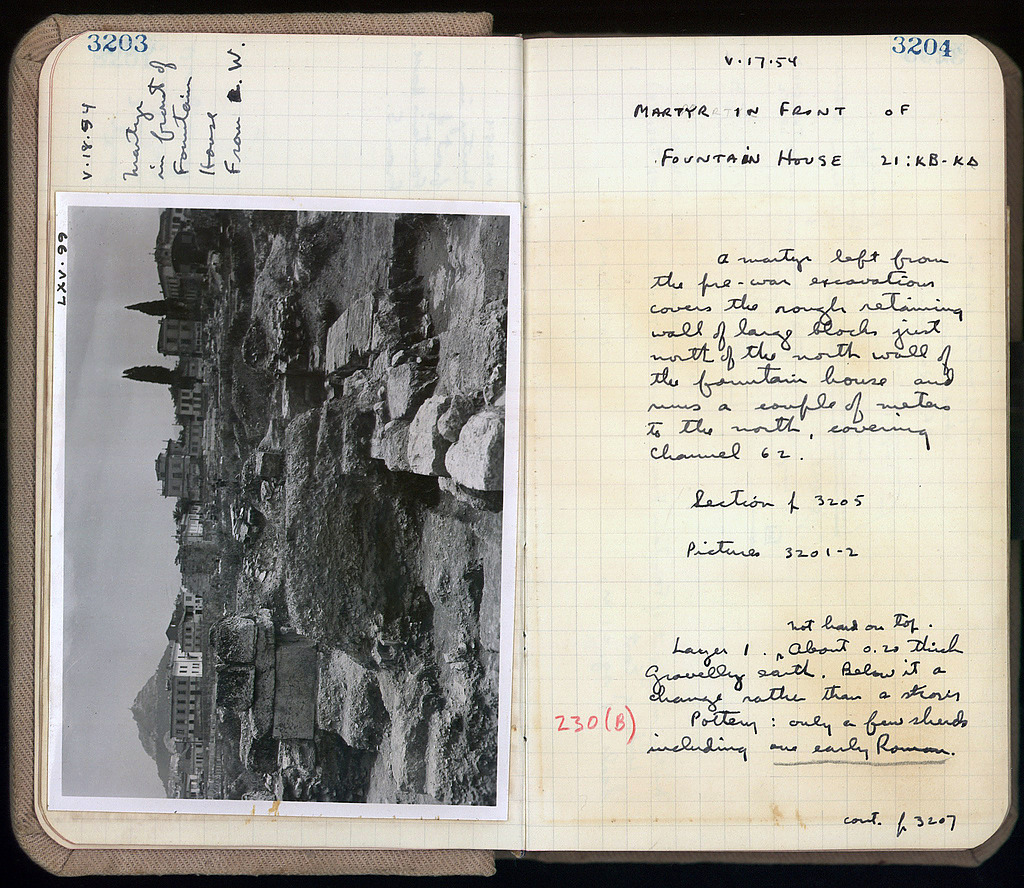 3203
V·18·54
Martyr
in front of
Fountain
House
From W.
LXV·99
3204
V·17·54
MARTYR IN FRONT OF
FOUNTAIN HOUSE 21:KB-KΔ
A martyr left from
the pre-war excavations
covers the rough retaining
wall of large blocks just
north of the north wall of
the fountain house and
runs a couple of meters
to the north, covering
Channel 62.
Section p 3205
Pictures 3201-2
not hard on top.
Layer 1. About 0.20 thick
Gravelly earth. Below it a
change rather than a strosis
230(B)
Pottery: only a few sherds
including one early Roman.
cont. p 3207